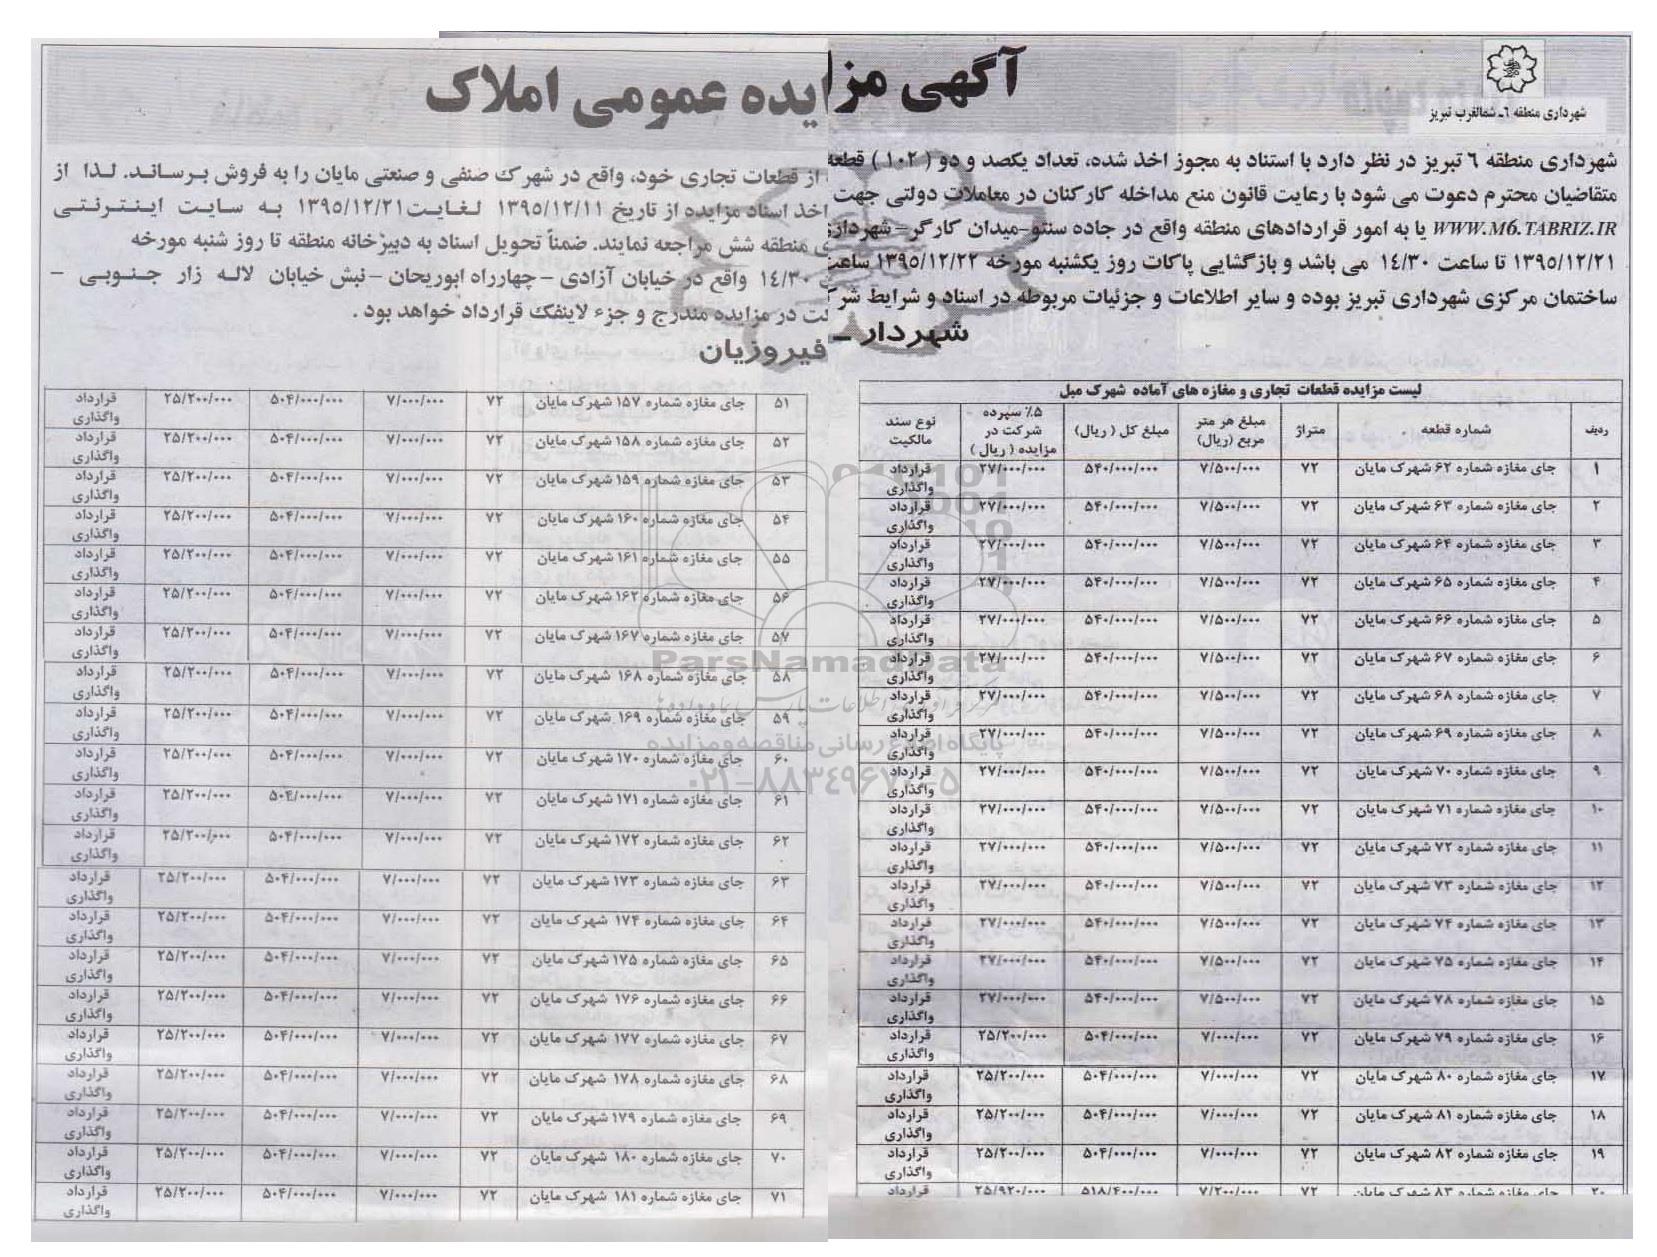 آگهی مزایده عمومی املاک
شهرداری منطقه ٦ـ شمالغرب تبریز
شهرداری منطقه ٦ تبریز در نظر دارد با استناد به مجوز اخذ شده، تعداد یکصد و دو ( ١٠٢ ) قطعه از قطعات تجاری خود، واقع در شهرک صنفی و صنعتی مایان را به فروش برساند. لذا از
متقاضیان محترم دعوت می شود با رعایت قانون منع مداخله کارکنان در معاملات دولتی جهت اخذ اسناد مزایده از تاریخ ١٣٩٥/١٢/١١ لغایت١٣٩٥/١٢/٢١ به سایت اینترنتی
WWW.M6.TABRIZ.IR یا به امور قراردادهای منطقه واقع در جاده سنتو-میدان کارگر-شهرداری منطقه شش مراجعه نمایند. ضمناً تحویل اسناد به دبیرخانه منطقه تا روز شنبه مورخه
١٣٩٥/١٢/٢١ تا ساعت ١٤/٣٠ می باشد و بازگشایی پاکات روز یکشنبه مورخه ١٣٩٥/١٢/٢٢ ساعت ١٤/٣٠ واقع در خیابان آزادی -چهارراه ابوریحان -نبش خیابان لاله زار جنوبی -
ساختمان مرکزی شهرداری تبریز بوده و سایر اطلاعات و جزئیات مربوطه در اسناد و شرایط شرکت در مزایده مندرج و جزء لاینفک قرارداد خواهد بود .
شهردار ـ فیروزیان
لیست مزایده قطعات تجاری و مغازه های آماده شهرک مبل
ردیف شماره قطعه متراژ مبلغ هر متر مربع (ریال) مبلغ کل ( ریال) ۵٪ سپرده شرکت در مزایده ( ریال ) نوع سند مالکیت
۱ جای مغازه شماره ۶۲ شهرک مایان ۷۲ ۷/۵۰۰/۰۰۰ ۵۴۰/۰۰۰/۰۰۰ ۲۷/۰۰۰/۰۰۰ قرارداد واگذاری
۲ جای مغازه شماره ۶۳ شهرک مایان ۷۲ ۷/۵۰۰/۰۰۰ ۵۴۰/۰۰۰/۰۰۰ ۲۷/۰۰۰/۰۰۰ قرارداد واگذاری
۳ جای مغازه شماره ۶۴ شهرک مایان ۷۲ ۷/۵۰۰/۰۰۰ ۵۴۰/۰۰۰/۰۰۰ ۲۷/۰۰۰/۰۰۰ قرارداد واگذاری
۴ جای مغازه شماره ۶۵ شهرک مایان ۷۲ ۷/۵۰۰/۰۰۰ ۵۴۰/۰۰۰/۰۰۰ ۲۷/۰۰۰/۰۰۰ قرارداد واگذاری
۵ جای مغازه شماره ۶۶ شهرک مایان ۷۲ ۷/۵۰۰/۰۰۰ ۵۴۰/۰۰۰/۰۰۰ ۲۷/۰۰۰/۰۰۰ قرارداد واگذاری
۶ جای مغازه شماره ۶۷ شهرک مایان ۷۲ ۷/۵۰۰/۰۰۰ ۵۴۰/۰۰۰/۰۰۰ ۲۷/۰۰۰/۰۰۰ قرارداد واگذاری
۷ جای مغازه شماره ۶۸ شهرک مایان ۷۲ ۷/۵۰۰/۰۰۰ ۵۴۰/۰۰۰/۰۰۰ ۲۷/۰۰۰/۰۰۰ قرارداد واگذاری
۸ جای مغازه شماره ۶۹ شهرک مایان ۷۲ ۷/۵۰۰/۰۰۰ ۵۴۰/۰۰۰/۰۰۰ ۲۷/۰۰۰/۰۰۰ قرارداد واگذاری
۹ جای مغازه شماره ۷۰ شهرک مایان ۷۲ ۷/۵۰۰/۰۰۰ ۵۴۰/۰۰۰/۰۰۰ ۲۷/۰۰۰/۰۰۰ قرارداد واگذاری
۱۰ جای مغازه شماره ۷۱ شهرک مایان ۷۲ ۷/۵۰۰/۰۰۰ ۵۴۰/۰۰۰/۰۰۰ ۲۷/۰۰۰/۰۰۰ قرارداد واگذاری
۱۱ جای مغازه شماره ۷۲ شهرک مایان ۷۲ ۷/۵۰۰/۰۰۰ ۵۴۰/۰۰۰/۰۰۰ ۲۷/۰۰۰/۰۰۰ قرارداد واگذاری
۱۲ جای مغازه شماره ۷۳ شهرک مایان ۷۲ ۷/۵۰۰/۰۰۰ ۵۴۰/۰۰۰/۰۰۰ ۲۷/۰۰۰/۰۰۰ قرارداد واگذاری
۱۳ جای مغازه شماره ۷۴ شهرک مایان ۷۲ ۷/۵۰۰/۰۰۰ ۵۴۰/۰۰۰/۰۰۰ ۲۷/۰۰۰/۰۰۰ قرارداد واگذاری
۱۴ جای مغازه شماره ۷۵ شهرک مایان ۷۲ ۷/۵۰۰/۰۰۰ ۵۴۰/۰۰۰/۰۰۰ ۲۷/۰۰۰/۰۰۰ قرارداد واگذاری
۱۵ جای مغازه شماره ۷۸ شهرک مایان ۷۲ ۷/۵۰۰/۰۰۰ ۵۴۰/۰۰۰/۰۰۰ ۲۷/۰۰۰/۰۰۰ قرارداد واگذاری
۱۶ جای مغازه شماره ۷۹ شهرک مایان ۷۲ ۷/۰۰۰/۰۰۰ ۵۰۴/۰۰۰/۰۰۰ ۲۵/۲۰۰/۰۰۰ قرارداد واگذاری
۱۷ جای مغازه شماره ۸۰ شهرک مایان ۷۲ ۷/۰۰۰/۰۰۰ ۵۰۴/۰۰۰/۰۰۰ ۲۵/۲۰۰/۰۰۰ قرارداد واگذاری
۱۸ جای مغازه شماره ۸۱ شهرک مایان ۷۲ ۷/۰۰۰/۰۰۰ ۵۰۴/۰۰۰/۰۰۰ ۲۵/۲۰۰/۰۰۰ قرارداد واگذاری
۱۹ جای مغازه شماره ۸۲ شهرک مایان ۷۲ ۷/۰۰۰/۰۰۰ ۵۰۴/۰۰۰/۰۰۰ ۲۵/۲۰۰/۰۰۰ قرارداد واگذاری
۲۰ جای مغازه شماره ۸۳ شهرک مایان ۷۲ ۷/۲۰۰/۰۰۰ ۵۱۸/۴۰۰/۰۰۰ ۲۵/۹۲۰/۰۰۰ قرارداد
۵۱ جای مغازه شماره ۱۵۷ شهرک مایان ۷۲ ۷/۰۰۰/۰۰۰ ۵۰۴/۰۰۰/۰۰۰ ۲۵/۲۰۰/۰۰۰ قرارداد واگذاری
۵۲ جای مغازه شماره ۱۵۸ شهرک مایان ۷۲ ۷/۰۰۰/۰۰۰ ۵۰۴/۰۰۰/۰۰۰ ۲۵/۲۰۰/۰۰۰ قرارداد واگذاری
۵۳ جای مغازه شماره ۱۵۹ شهرک مایان ۷۲ ۷/۰۰۰/۰۰۰ ۵۰۴/۰۰۰/۰۰۰ ۲۵/۲۰۰/۰۰۰ قرارداد واگذاری
۵۴ جای مغازه شماره ۱۶۰ شهرک مایان ۷۲ ۷/۰۰۰/۰۰۰ ۵۰۴/۰۰۰/۰۰۰ ۲۵/۲۰۰/۰۰۰ قرارداد واگذاری
۵۵ جای مغازه شماره ۱۶۱ شهرک مایان ۷۲ ۷/۰۰۰/۰۰۰ ۵۰۴/۰۰۰/۰۰۰ ۲۵/۲۰۰/۰۰۰ قرارداد واگذاری
۵۶ جای مغازه شماره ۱۶۲ شهرک مایان ۷۲ ۷/۰۰۰/۰۰۰ ۵۰۴/۰۰۰/۰۰۰ ۲۵/۲۰۰/۰۰۰ قرارداد واگذاری
۵۷ جای مغازه شماره ۱۶۷ شهرک مایان ۷۲ ۷/۰۰۰/۰۰۰ ۵۰۴/۰۰۰/۰۰۰ ۲۵/۲۰۰/۰۰۰ قرارداد واگذاری
۵۸ جای مغازه شماره ۱۶۸ شهرک مایان ۷۲ ۷/۰۰۰/۰۰۰ ۵۰۴/۰۰۰/۰۰۰ ۲۵/۲۰۰/۰۰۰ قرارداد واگذاری
۵۹ جای مغازه شماره ۱۶۹ شهرک مایان ۷۲ ۷/۰۰۰/۰۰۰ ۵۰۴/۰۰۰/۰۰۰ ۲۵/۲۰۰/۰۰۰ قرارداد واگذاری
۶۰ جای مغازه شماره ۱۷۰ شهرک مایان ۷۲ ۷/۰۰۰/۰۰۰ ۵۰۴/۰۰۰/۰۰۰ ۲۵/۲۰۰/۰۰۰ قرارداد واگذاری
۶۱ جای مغازه شماره ۱۷۱ شهرک مایان ۷۲ ۷/۰۰۰/۰۰۰ ۵۰۴/۰۰۰/۰۰۰ ۲۵/۲۰۰/۰۰۰ قرارداد واگذاری
۶۲ جای مغازه شماره ۱۷۲ شهرک مایان ۷۲ ۷/۰۰۰/۰۰۰ ۵۰۴/۰۰۰/۰۰۰ ۲۵/۲۰۰/۰۰۰ قرارداد واگذاری
۶۳ جای مغازه شماره ۱۷۳ شهرک مایان ۷۲ ۷/۰۰۰/۰۰۰ ۵۰۴/۰۰۰/۰۰۰ ۲۵/۲۰۰/۰۰۰ قرارداد واگذاری
۶۴ جای مغازه شماره ۱۷۴ شهرک مایان ۷۲ ۷/۰۰۰/۰۰۰ ۵۰۴/۰۰۰/۰۰۰ ۲۵/۲۰۰/۰۰۰ قرارداد واگذاری
۶۵ جای مغازه شماره ۱۷۵ شهرک مایان ۷۲ ۷/۰۰۰/۰۰۰ ۵۰۴/۰۰۰/۰۰۰ ۲۵/۲۰۰/۰۰۰ قرارداد واگذاری
۶۶ جای مغازه شماره ۱۷۶ شهرک مایان ۷۲ ۷/۰۰۰/۰۰۰ ۵۰۴/۰۰۰/۰۰۰ ۲۵/۲۰۰/۰۰۰ قرارداد واگذاری
۶۷ جای مغازه شماره ۱۷۷ شهرک مایان ۷۲ ۷/۰۰۰/۰۰۰ ۵۰۴/۰۰۰/۰۰۰ ۲۵/۲۰۰/۰۰۰ قرارداد واگذاری
۶۸ جای مغازه شماره ۱۷۸ شهرک مایان ۷۲ ۷/۰۰۰/۰۰۰ ۵۰۴/۰۰۰/۰۰۰ ۲۵/۲۰۰/۰۰۰ قرارداد واگذاری
۶۹ جای مغازه شماره ۱۷۹ شهرک مایان ۷۲ ۷/۰۰۰/۰۰۰ ۵۰۴/۰۰۰/۰۰۰ ۲۵/۲۰۰/۰۰۰ قرارداد واگذاری
۷۰ جای مغازه شماره ۱۸۰ شهرک مایان ۷۲ ۷/۰۰۰/۰۰۰ ۵۰۴/۰۰۰/۰۰۰ ۲۵/۲۰۰/۰۰۰ قرارداد واگذاری
۷۱ جای مغازه شماره ۱۸۱ شهرک مایان ۷۲ ۷/۰۰۰/۰۰۰ ۵۰۴/۰۰۰/۰۰۰ ۲۵/۲۰۰/۰۰۰ قرارداد واگذاری
ParsNamadData
پایگاه اطلاع رسانی مناقصه و مزایده